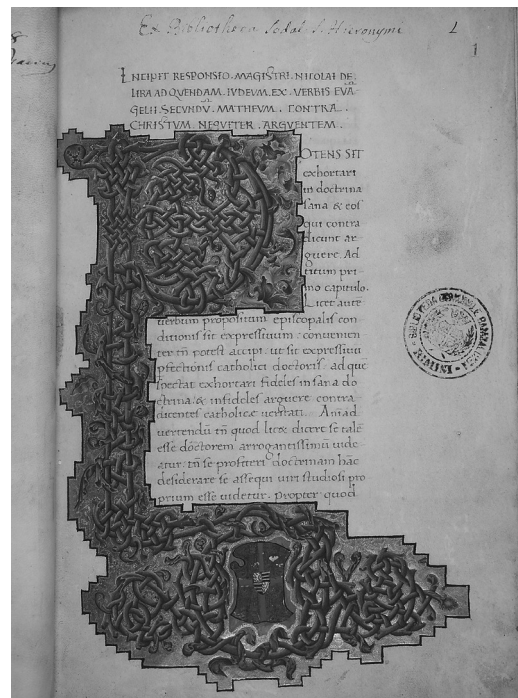 Ex Bibliotheca Sodal. S. Hieronymi
1
INCIPIT RESPONSIO. MAGISTRI. NICOLAI DE.
LIRA AD QUENDAM. IUDEUM. EX. VERBIS EVĀ
GELII. SECUNDV̄. MATHEVM. CONTRA.
CHRISTVM NEQUITER. ARGVENTEM.
POTENS SIT
exhortari
in doctrina
sana & eos
qui contra
dicunt ar
guere. Ad
titum pri
mo capitulo.
Licet autē
uerbum propositum episcopalis con
ditionis sit expressiuum: conuenien
ter tn̄ potest accipi. ut sit expressiuū
pfectionis catholici doctoris. ad quē
spectat exhortari fideles in sana do
ctrina: & infideles arguere contra
dicentes catholicæ ueritati. Animad
uertendū tn̄ quod licet dicere se talē
esse doctorem arrogantissimū uide
atur. tn̄ se profiteri doctrinam hāc
desiderare se assequi uiri studiosi pro
prium esse uidetur. propter quod